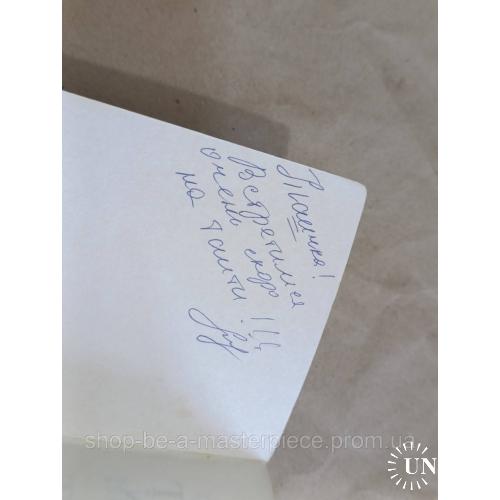 Пашка!
Встретимся
очень скоро !!!
на Таити.
shop-be-a-masterpiece.prom.ua
UN